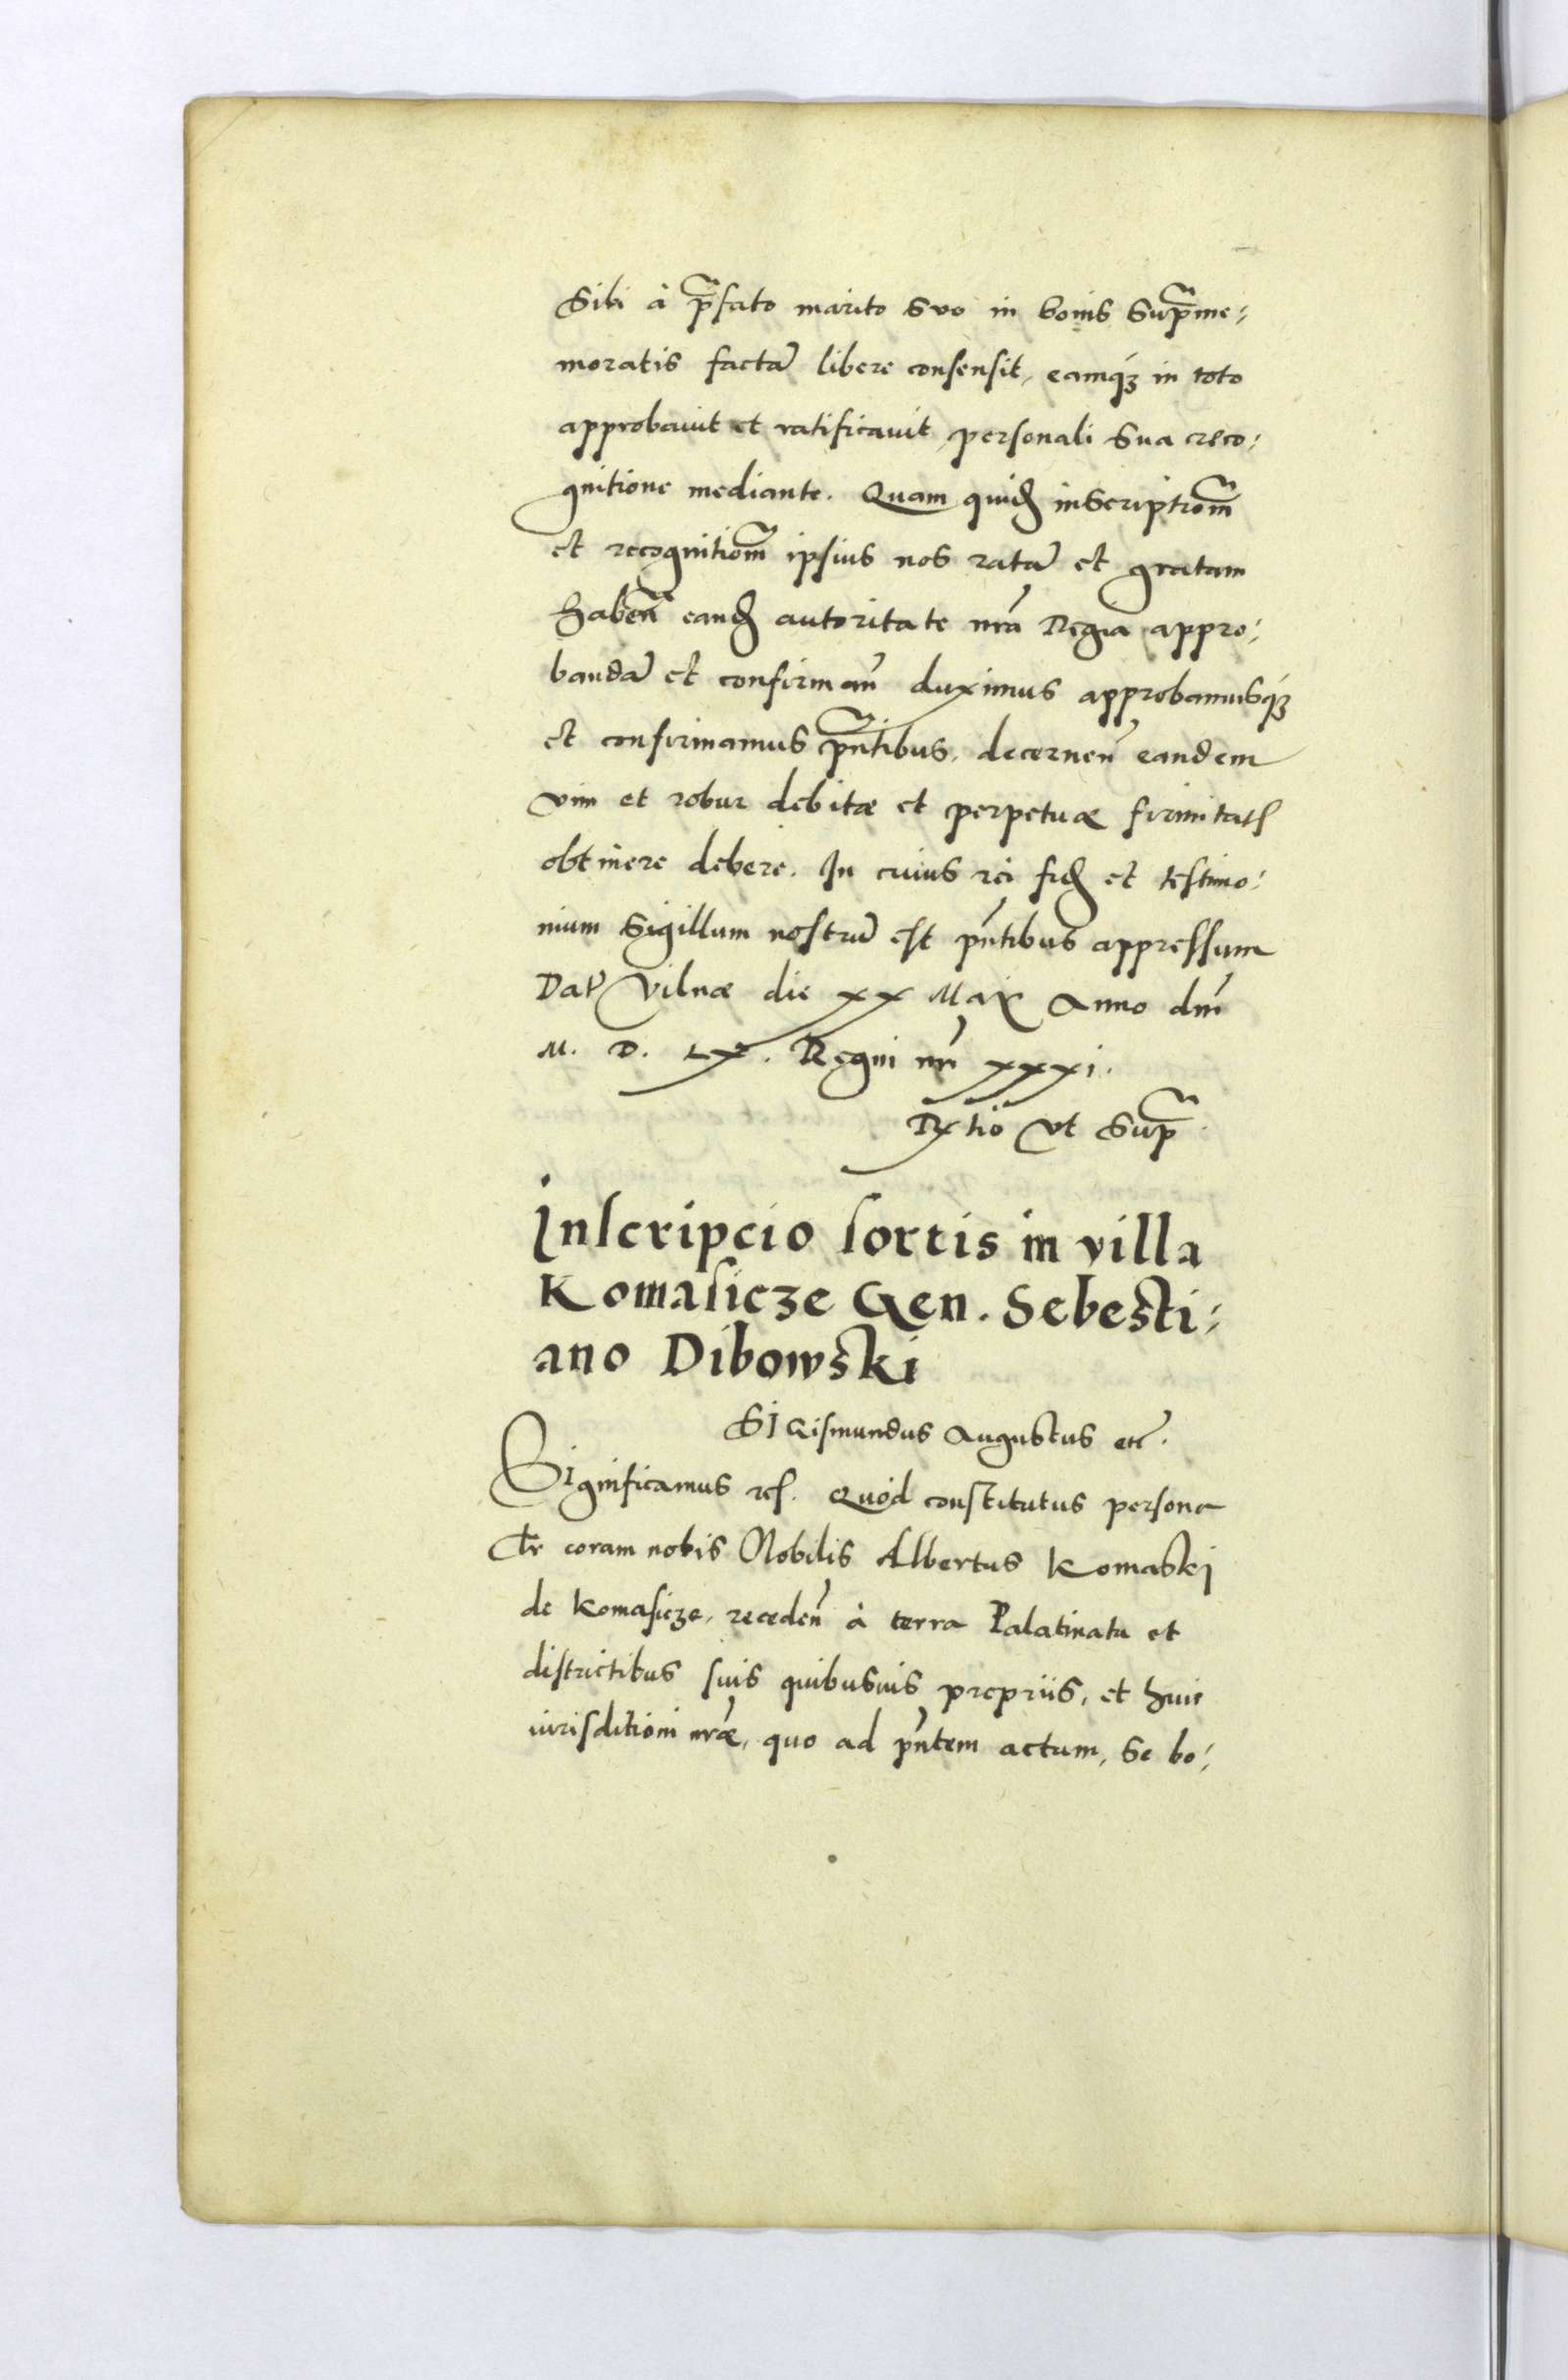 Sibi à p̃fato marito suo in bonis Sup̃me:
moratis factã libere consensit, eamq́ꝫ in toto
approbavit et ratificavit, personali sua reco:
gnitione mediante. Quam quidẽ inscriptiom̃
et recognitiom̃ ipsius nos ratã et gratam
habeñ eandẽ autoritate nrã Regia appro:
bandã et confirmañ duximus approbamusq́ꝫ
et confirmamus p̃ntibus, decerneñ eandem
vim et robur debitæ et perpetuæ firmitatꝭ
obtinere debere. In cuius rei fidẽ et testimo:
nium Sigillum nostrũ est pñtibus appressum
Dat̃ Vilnæ die xx Maij Anno dnĩ
M. D. LX. Regni nrĩ xxxi.
R̃tio vt Sup̃
Inscripcio sortis in villa
Komasicze Gen. Sebesti:
ano Dibowski
SIGismundus Augustus etc̃.
Significamus etc. Quòd constitutus persona
lr̃ coram nobis Nobilis Albertus Komaski
de Komasicze, recedeñ à terra Palatinatu et
districtibus suis quibusvis propriis, et huic
iurisditioni nræ̃, quo ad pñtem actum, se bo: